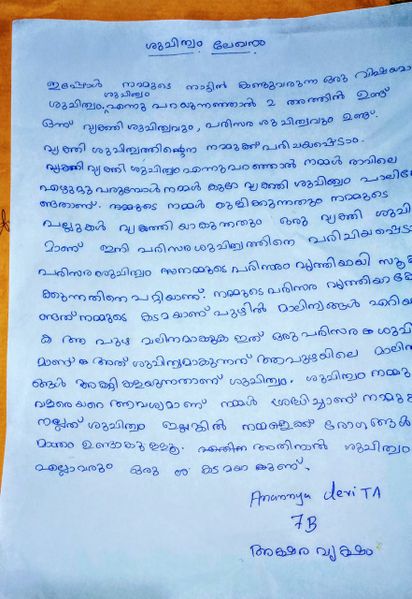 ശുചിത്വം ലേഖനം
ഇപ്പോൾ നാമ്മുടെ നാട്ടിൽ കണ്ടുവരുന്ന ഒരു വിഷയമാ
ശുചിത്വം
ശുചിത്വം, എന്നു പറയുന്നതാൽ 2 അതിൽ ഉണ്ട്
ഒന്ന് വ്യക്തി ശുചിത്വവും, പരിസര ശുചിത്വവും ഉണ്ട്.
വ്യക്തി ശുചിത്വത്തിനെ നമ്മുക്ക് പരിചയപ്പെടാം.
വ്യക്തി ശുചിത്വം എന്നുപറഞ്ഞാൽ നമ്മൾ രാവിലെ
എഴുന്നു വരുമ്പോൾ നമ്മൾ കുറേ വ്യക്തി ശുചിത്വം പാലിക്കേ
ണ്ടതാണ്. നമ്മുടെ നമ്മൾ കുളിക്കുന്നതും നമ്മുടെ
പല്ലുകൾ വൃത്തിയാകുന്നതും ഒരു വ്യക്തി ശുചി
മാണ് ഇനി പരിസര ശുചിത്വത്തിനെ പരിചിയപ്പെടാ
പരിസര ശുചിത്വം നമ്മുടെ പരിസരം വൃത്തിയായി സൂക്ഷി
ക്കുന്നതിനെ പറ്റിയാണ്. നമ്മുടെ പരിസര വൃത്തിയാക്കേ
ണ്ടത് നമ്മുടെ കടമയാണ് പുഴിൽ മാലിന്യങ്ങൾ എറിയ
ക ആ പുഴ മലിനമാക്കുക ഇത് ഒരു പരിസര ശുചി
മാണ് അത് ശുചിത്വമാകുന്നത് ആ പുഴയിലെ മാലിന
ങ്ങൾ അക്കിളയുന്നതാണ് ശുചിത്വം. ശുചിത്വം നമ്മു
വളരെയെറെ ആവശ്യമാണ് നമ്മൾ ശ്രദ്ധിച്ചാണ് നാമ്മുടെ
നല്ലത് ശുചിത്വം ഇല്ലങ്കിൽ നമ്മളെക്ക് രോഗങ്ങൾ
മാത്രം ഉണ്ടാകുള്ളൂ. അതിനാൽ ശുചിത്വം
എല്ലാവരും ഒരു കടമയാകുണ്.
Anannya devi TA
7B
അക്ഷര വൃക്ഷം